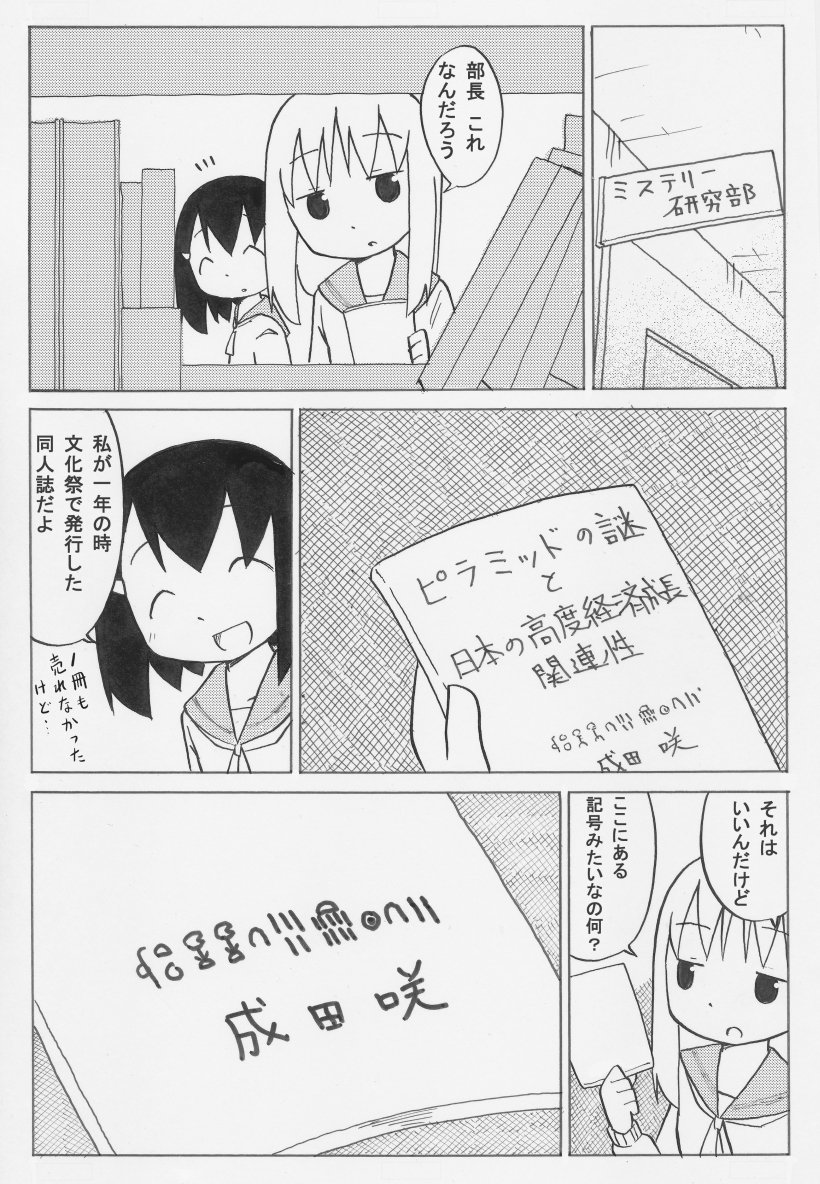 ミステリー
研究部
部長 これ
なんだろう
ピラミッドの謎
と
日本の高度経済成長
関連性
成田 咲
私が一年の時
文化祭で発行した
同人誌だよ
1冊も
売れなかった
けど…
それは
いいんだけど
ここにある
記号みたいなの何?
成田 咲